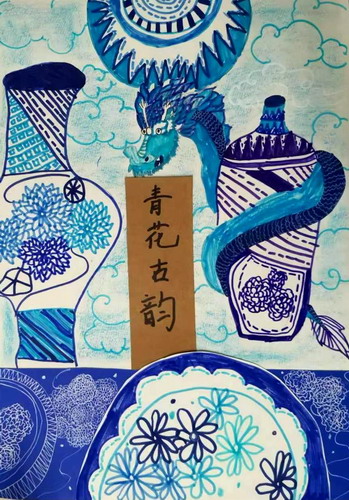 青花古韵